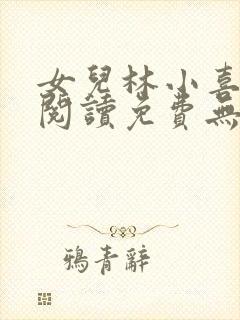 女兒林小喜
閱讀免費無
鴉青辭